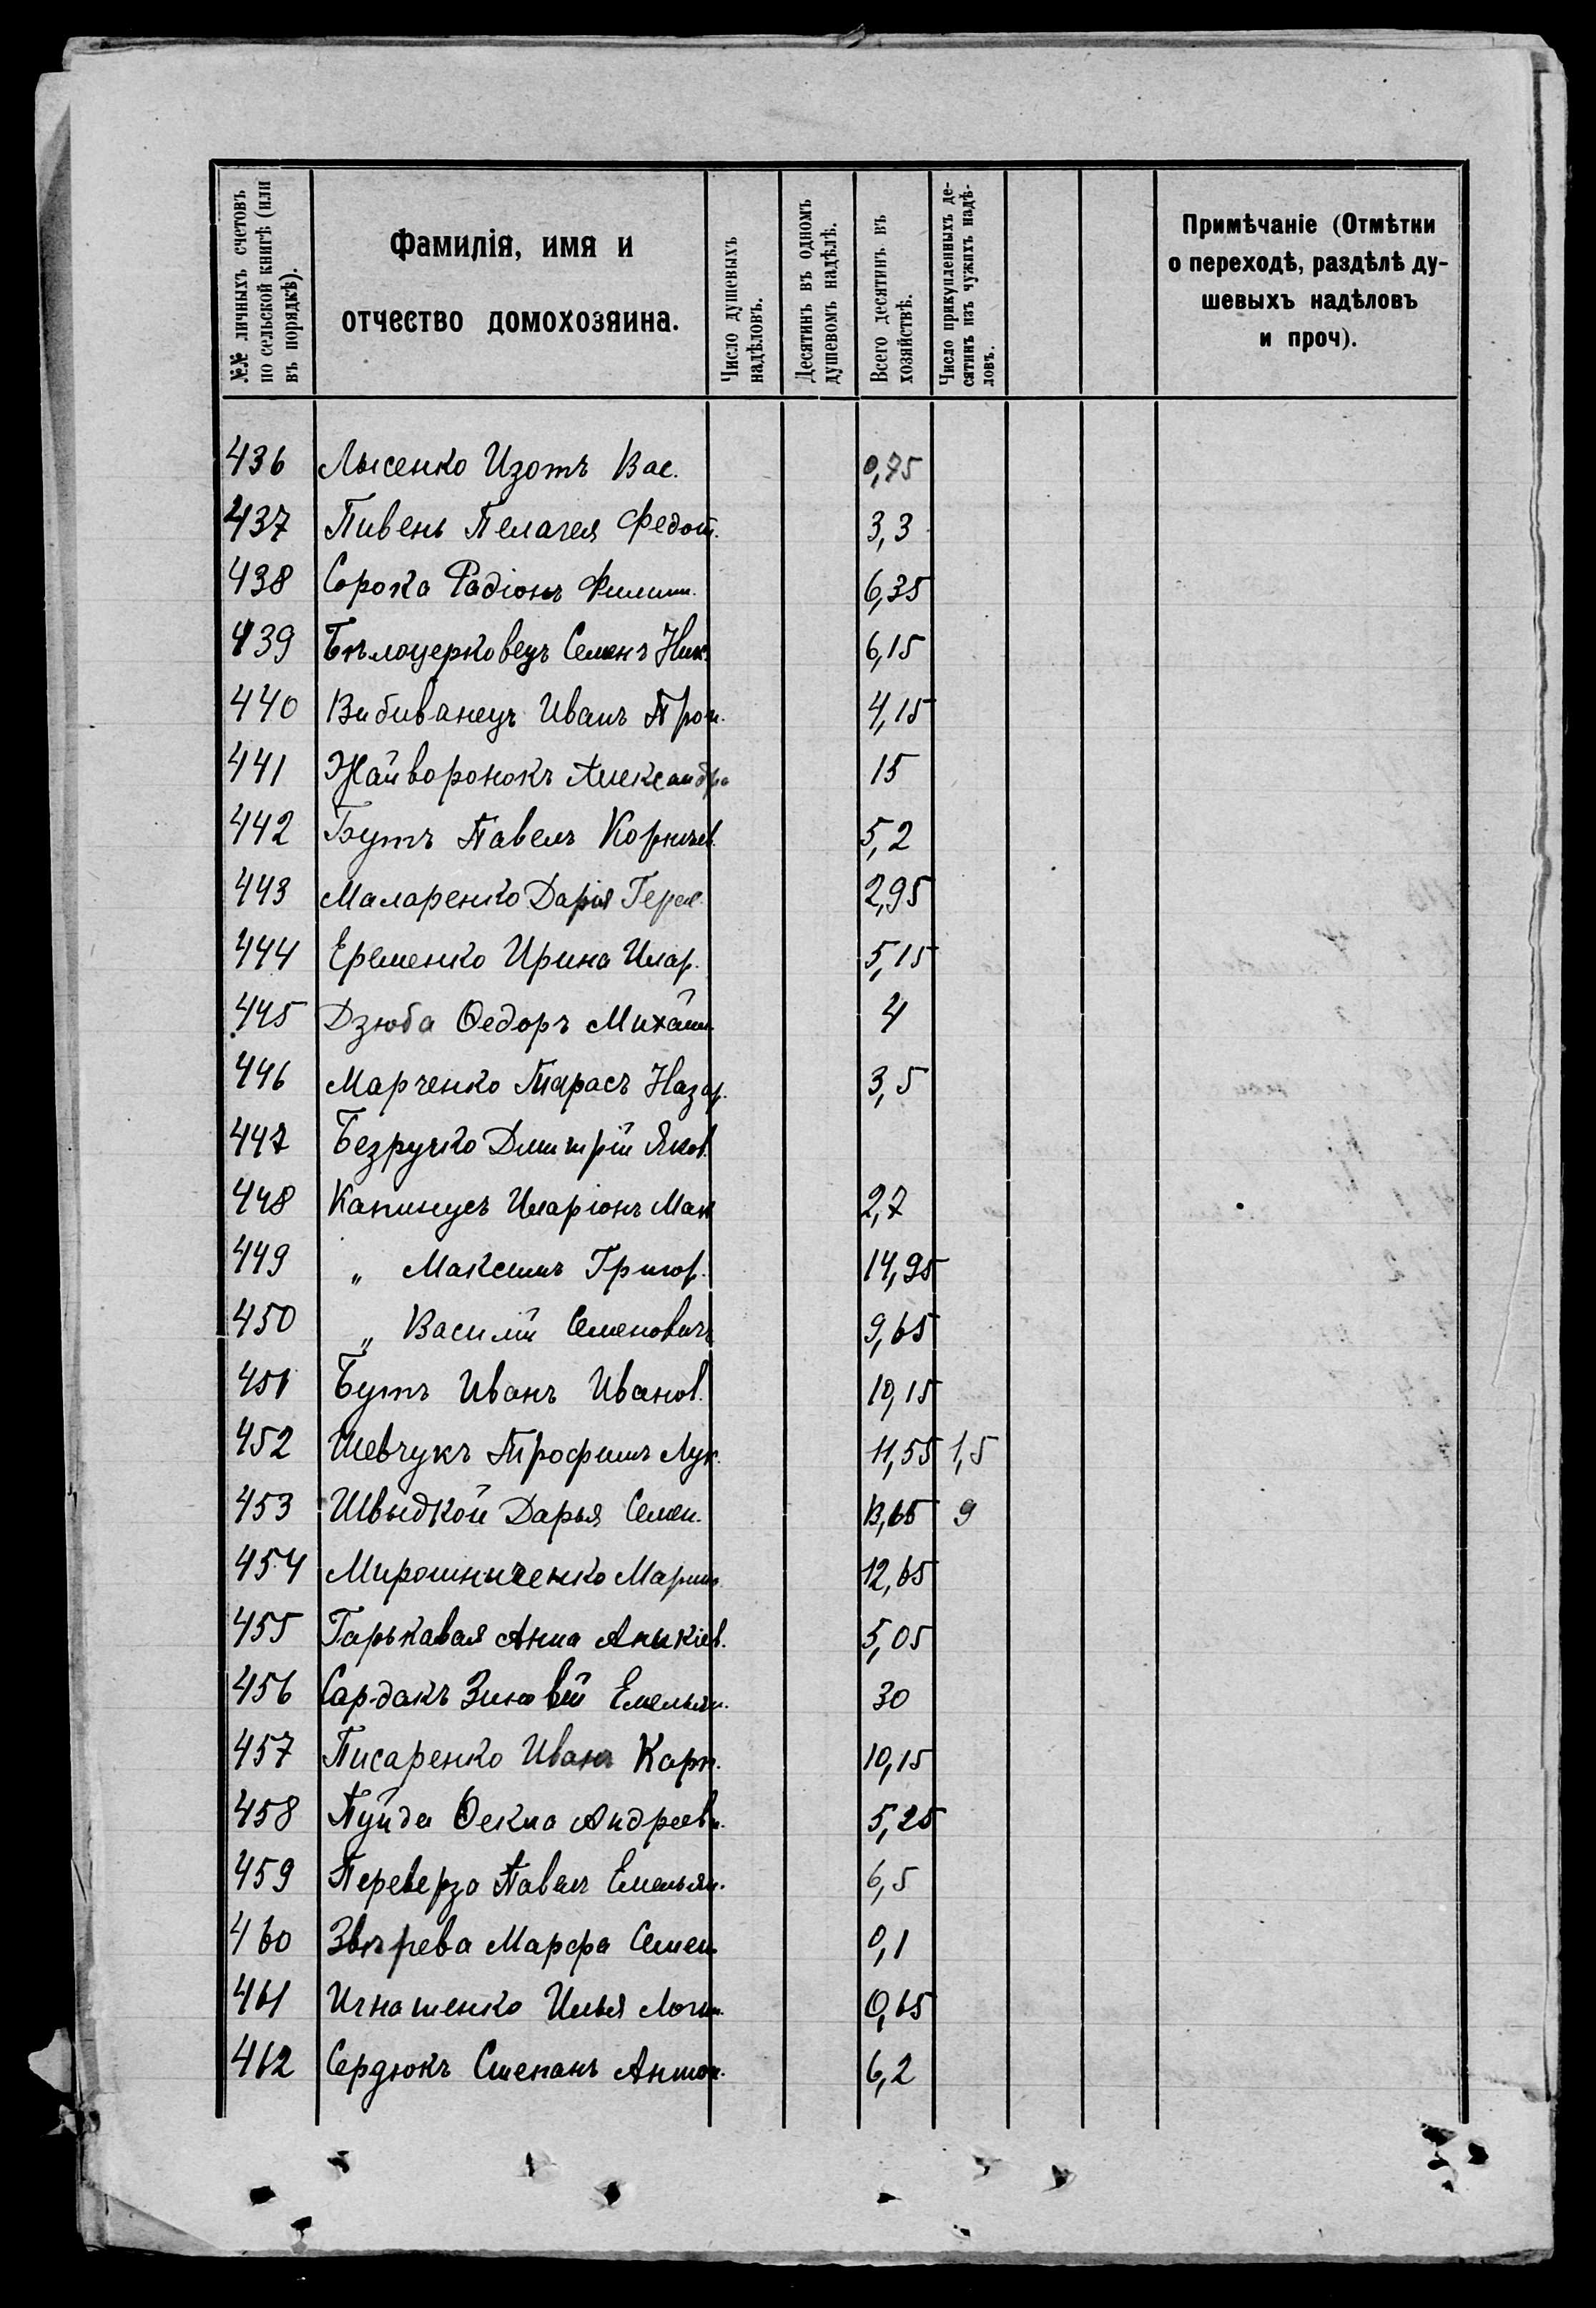 №№ личныхъ счетовъ
по сельской книгѣ (или
въ порядкѣ).
Фамилія, имя и
отчество домохозяина.
Число душевыхъ
надѣловъ.
Десятинъ въ одномъ
душевомъ надѣлѣ.
Всего десятинъ въ
хозяйствѣ.
Число прикупленныхъ де-
сятинъ изъ чужихъ надѣ-
ловъ.
Примѣчаніе (Отмѣтки
о переходѣ, раздѣлѣ ду-
шевыхъ надѣловъ
и проч).
436 Лысенко Изотъ Вас. 0,75
437 Пивень Пелагея Федот. 3,3
438 Сорока Радіонъ Филип. 6,35
439 Бѣлоцерковецъ Семенъ Ник. 6,15
440 Вибиванецъ Иванъ Прок. 4,15
441 Жайворонокъ Александра 15
442 Бутъ Павелъ Корнѣев. 5,2
443 Маларенко Дарія Герас. 2,95
444 Еременко Ирина Илар. 5,15
445 Дзюба Ѳедоръ Михайл. 4
446 Марченко Тарасъ Назар. 3,5
447 Безручко Дмитрій Яков.
448 Капинусъ Иларіонъ Мак 2,7
449 „ Максимъ Григор. 14,95
450 „ Василій Семеновичъ 9,65
451 Бутъ Иванъ Иванов. 10,15
452 Шевчукъ Трофимъ Лук. 11,55 1,5
453 Швыдкой Дарья Семен. 13,65 9
454 Мирошниченко Марина 12,65
455 Гарькавая Анна Аникіев. 5,05
456 Сардакъ Зиновій Емельян. 30
457 Писаренко Иванъ Карп. 10,15
458 Пуйда Ѳекла Андреевн. 5,25
459 Переверза Павелъ Емельян. 6,5
460 Звѣрева Марфа Семен 0,1
461 Игнатенко Илья Логин. 0,65
462 Сердюкъ Степанъ Антон. 6,2